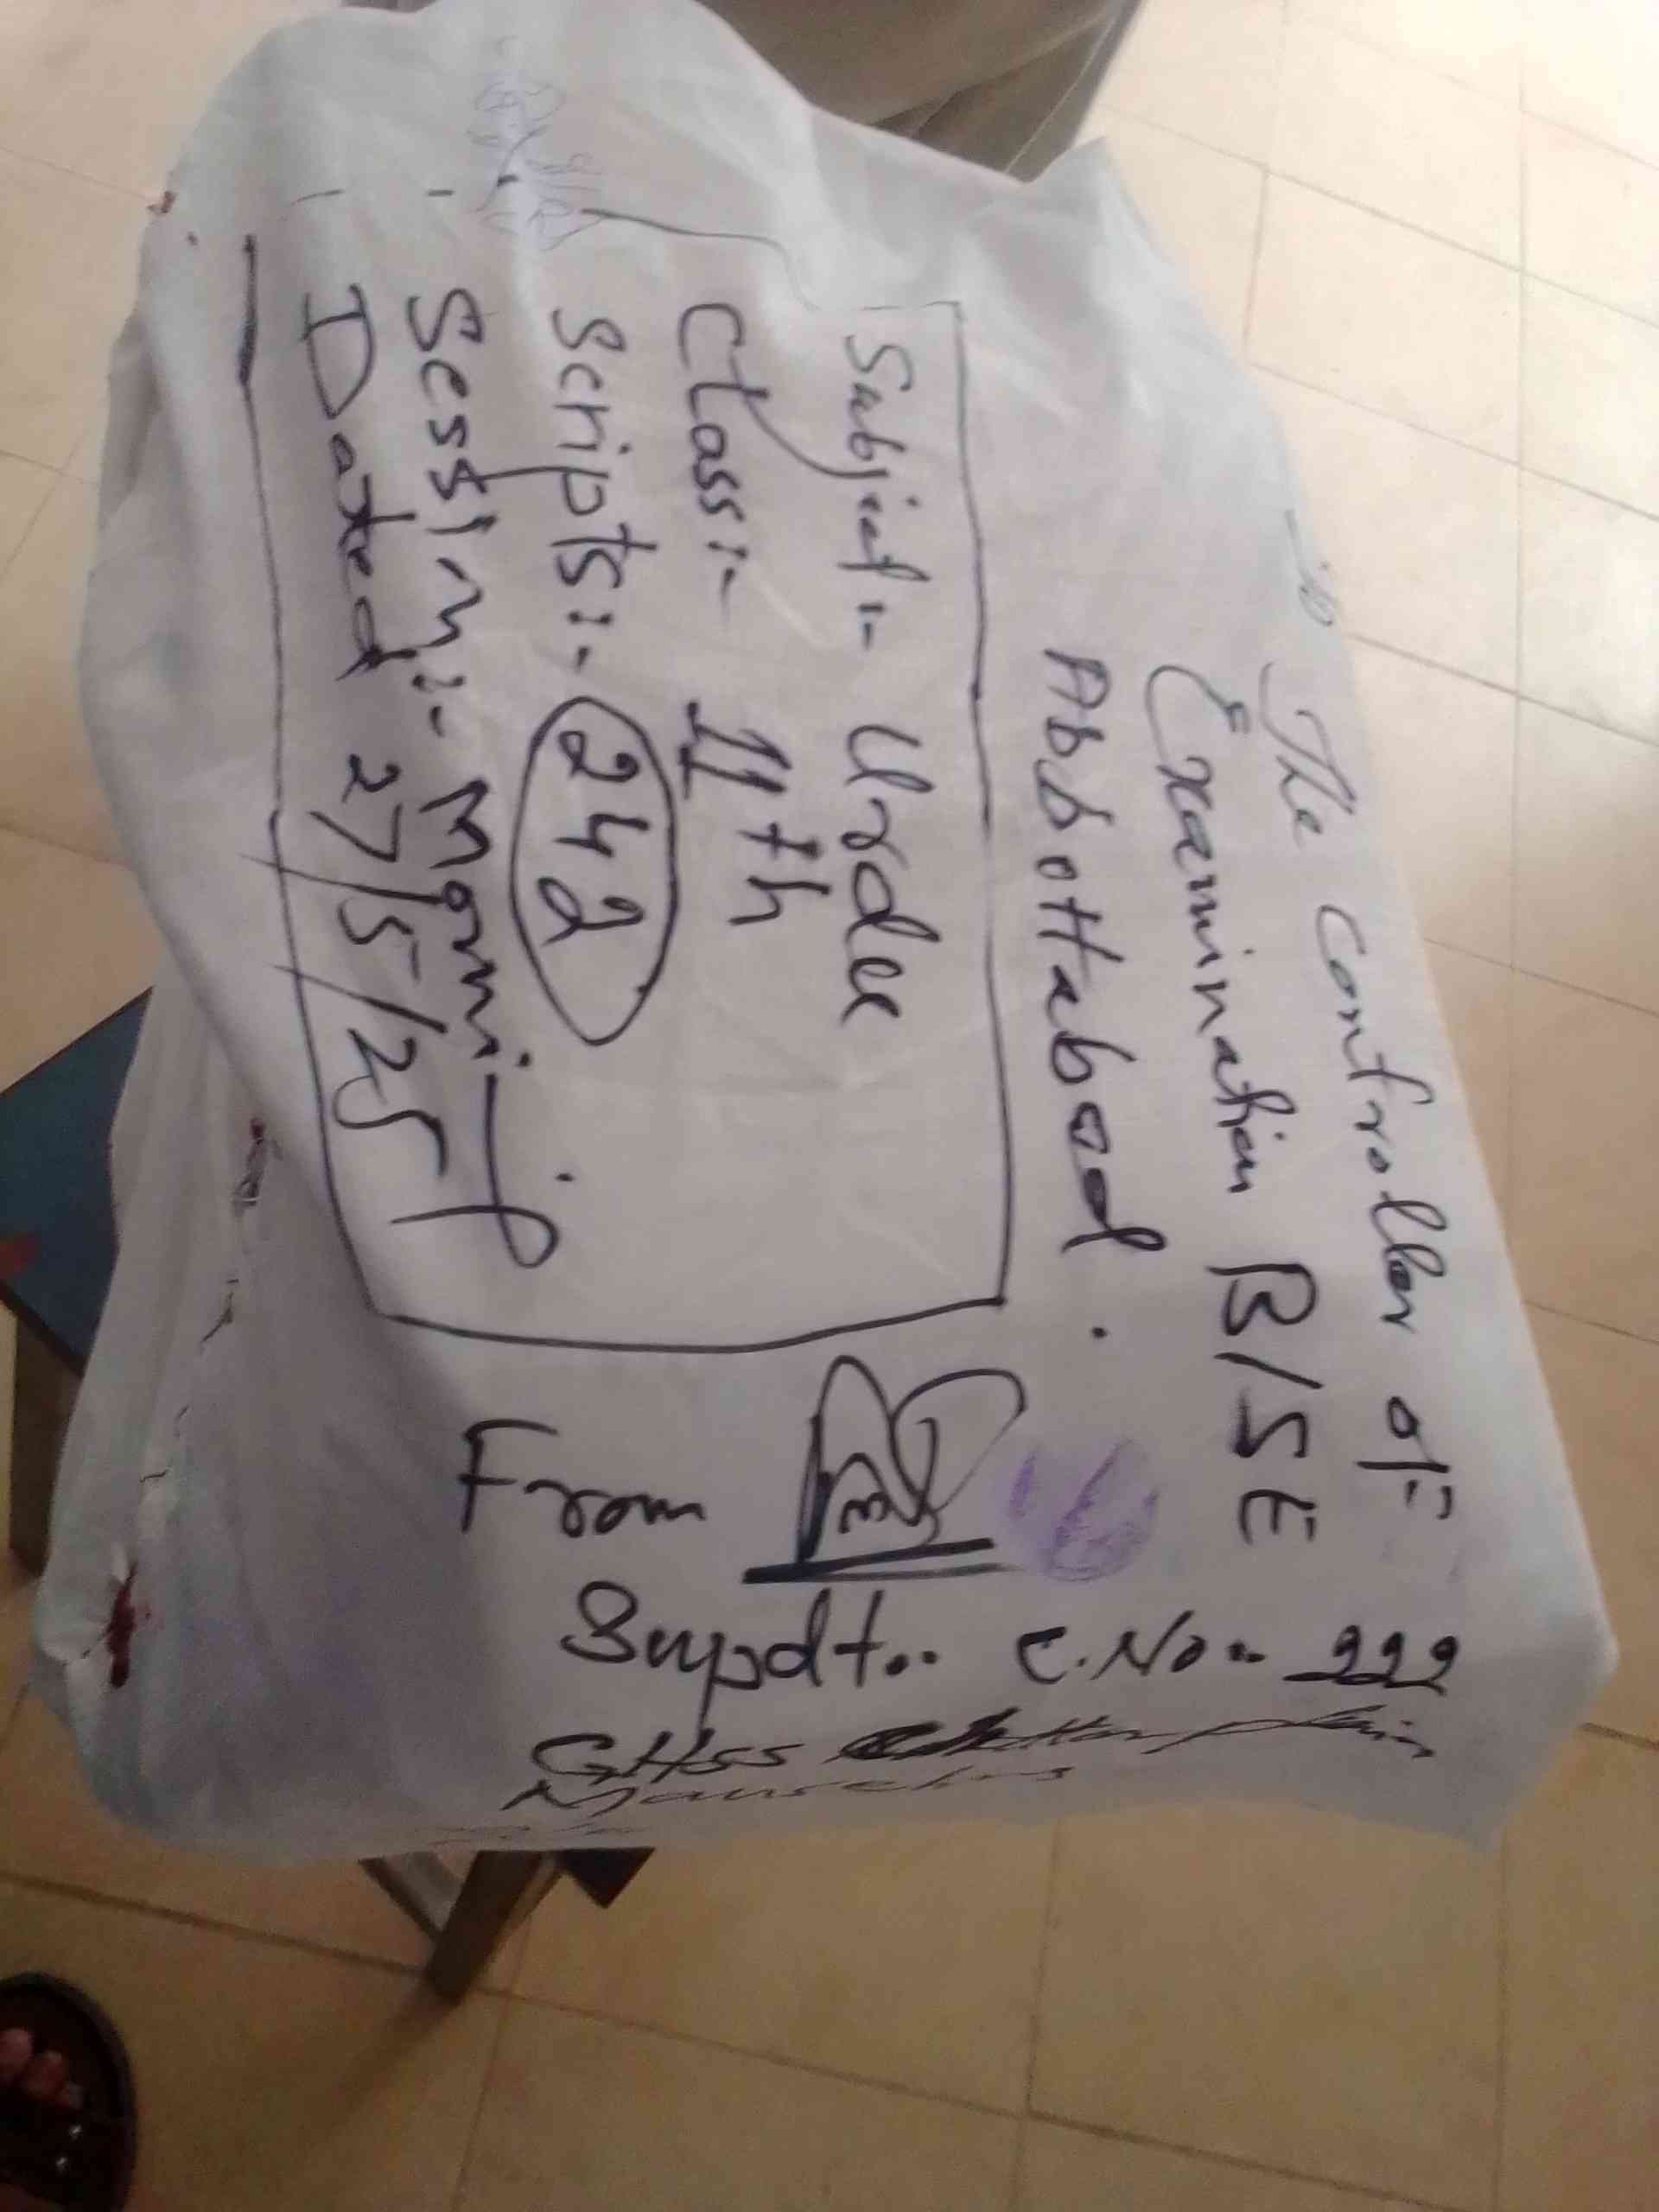 The Controller of
Examination B/SE
Abbottabad.
Subject:- Urdu
Class:- 11th
Scripts:- 242
Session:- Morning
Dated 27/5/25
From
Supdt.. C.No:- 222
GHSS Chattar plain
Mansehra